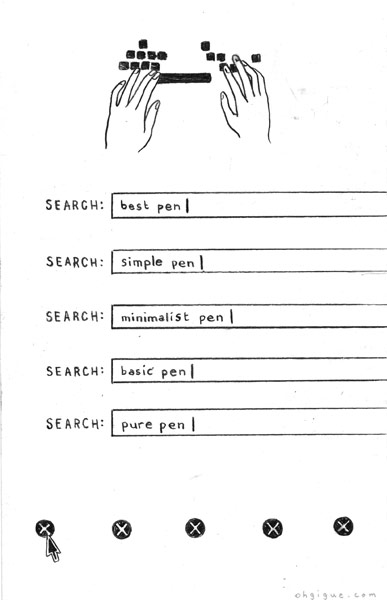 SEARCH: best pen
SEARCH: simple pen
SEARCH: minimalist pen
SEARCH: basic pen
SEARCH: pure pen
ohgigue.com